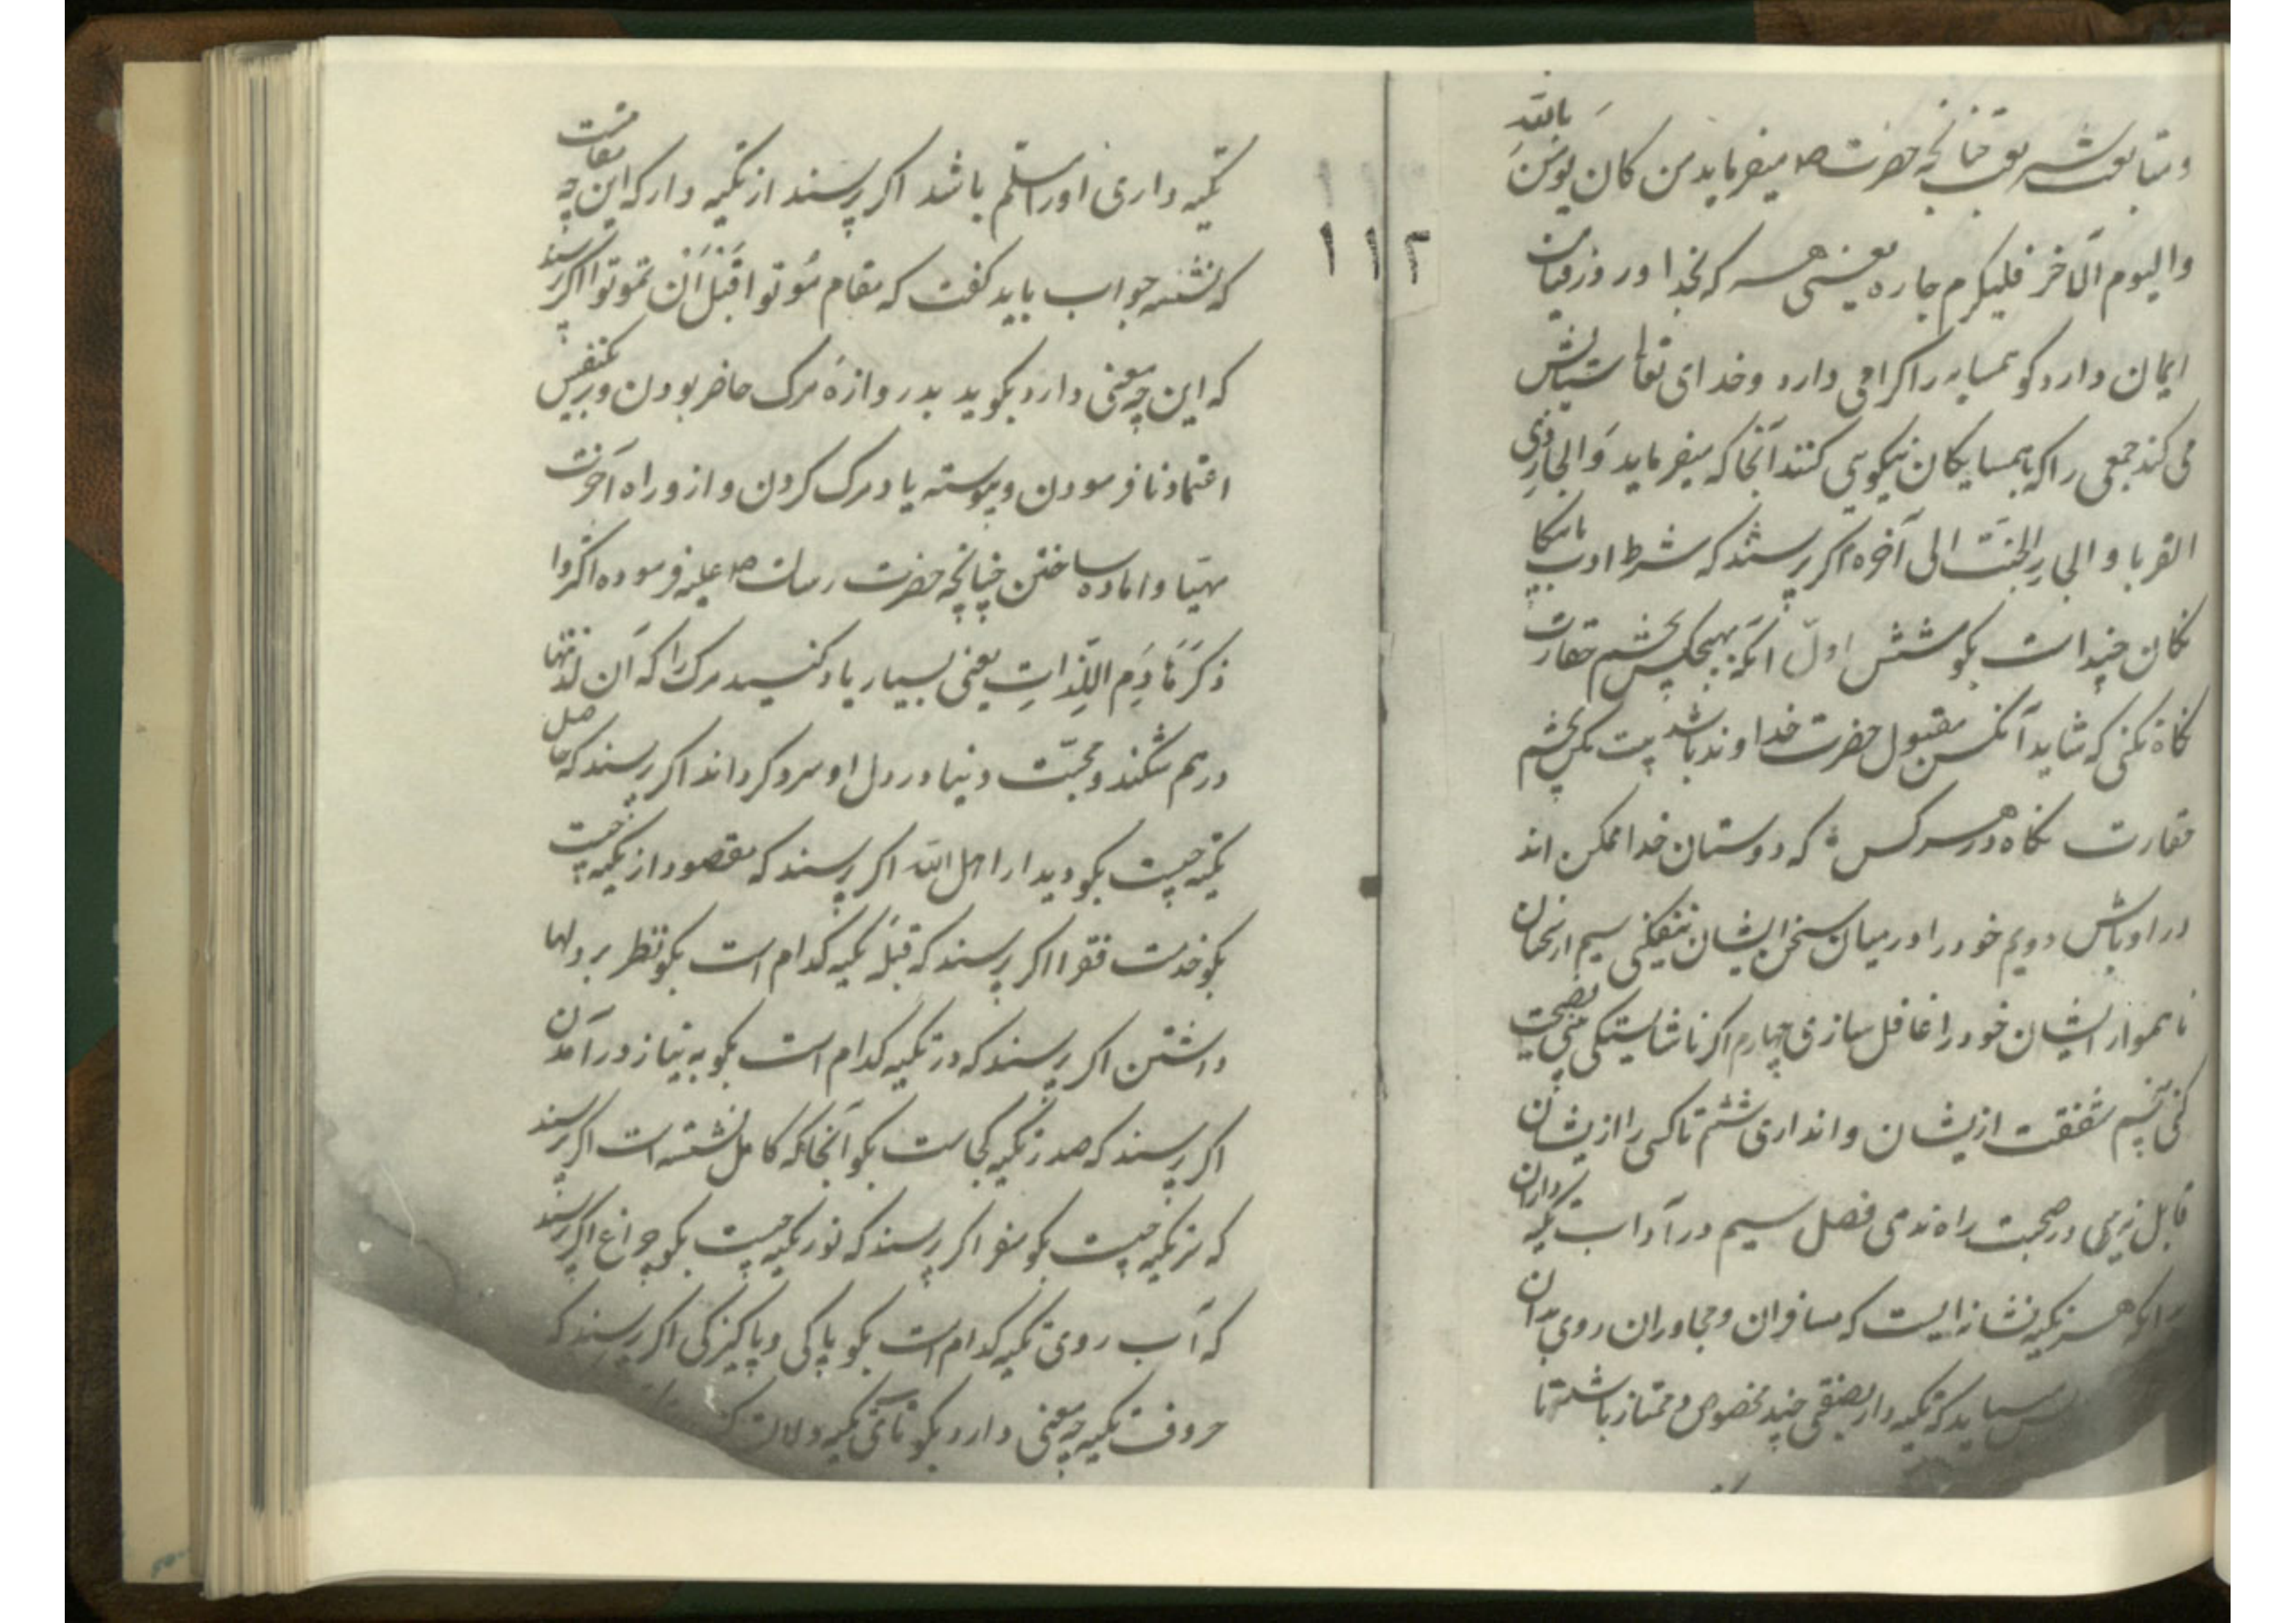 و متابعت شریعت چنانچه حضرت ص میفرماید من کان یومن بالله
والیوم الآخر فلیکرم جاره یعنی هر که بخدا و روز قیامت
ایمان دارد کو همسایه را کرامی دارد و خدای تعا ستایش
می کند جمعی را که باهمسایکان نیکویی کنند آنجا که میفرماید وَالجارِ ذی
القربا و الجارِ الجنت الی آخره اکر پرسند که شرط ادب با نیکان
چند است بکو شش اول آنکه بهیچکس بچشم حقارت
نکاه نکنی که شاید آنکس مقبول حضرت خداوند باشد بیت مکن بچشم
حقارت نکاه در هر کس که دوستان خدا ممکن اند
در اوباش دویم خود را در میان سخن ایشان نیفکنی سیم از سخنان
ناهموار ایشان خود را غافل سازی چهارم اکر ناشایستکی بینی نصیحت
کنی پنجم شفقت ازیشان وانداری ششم تا کسی را ازیشان
قابل نبینی در صحبت راه ندهی فصل سیم در آداب تکیه داران
بدانکه هر تکیه نشانه ایست که مسافران و مجاوران روی بدان
میباید که تکیه دار بصنفی چند مخصوص و ممتاز باشد تا
۱۱۲
تکیه داری او را مسلم باشد اکر پرسند از تکیه دار که این چه مقامست
که نشسته جواب باید کفت که مقام مُوتوا قَبْلَ اَنْ تموتوا اکر پرسند
که این چه معنی دارد بکوید بدروازهٔ مرک حاضر بودن و بر نفس
اعتماد نافرمودن و پیوسته یاد مرک کردن و ازو راه آخرت
مهیا و اماده ساختن چنانچه حضرت رسالت ص علیه فرموده اکثروا
ذکرَ هَادِم اللذاتِ یعنی بسیار یاد کنید مرک را که آن لذتها
درهم شکند و محبت دنیا در دل او سرد کرداند اکر پرسند که حاصل
تکیه چیست بکو دیدار اهل الله اکر پرسند که مقصود از تکیه چیست
بکو خدمت فقرا اکر پرسند که قبلهٔ تکیه کدام است بکو نظر بر دلها
داشتن اکر پرسند که در تکیه کدام است بکو به نیاز درآمدن
اکر پرسند که صدر تکیه کجاست بکو آنجا که کامل نشسته است اکر پرسند
که سر تکیه چیست بکو سفره اکر پرسند که نور تکیه چیست بکو چراغ اکر پرسند
که آب روی تکیه کدام است بکو پاکی و پاکیزکی اکر پرسند که
حروف تکیه چه معنی دارد بکو تای تکیه دلالت